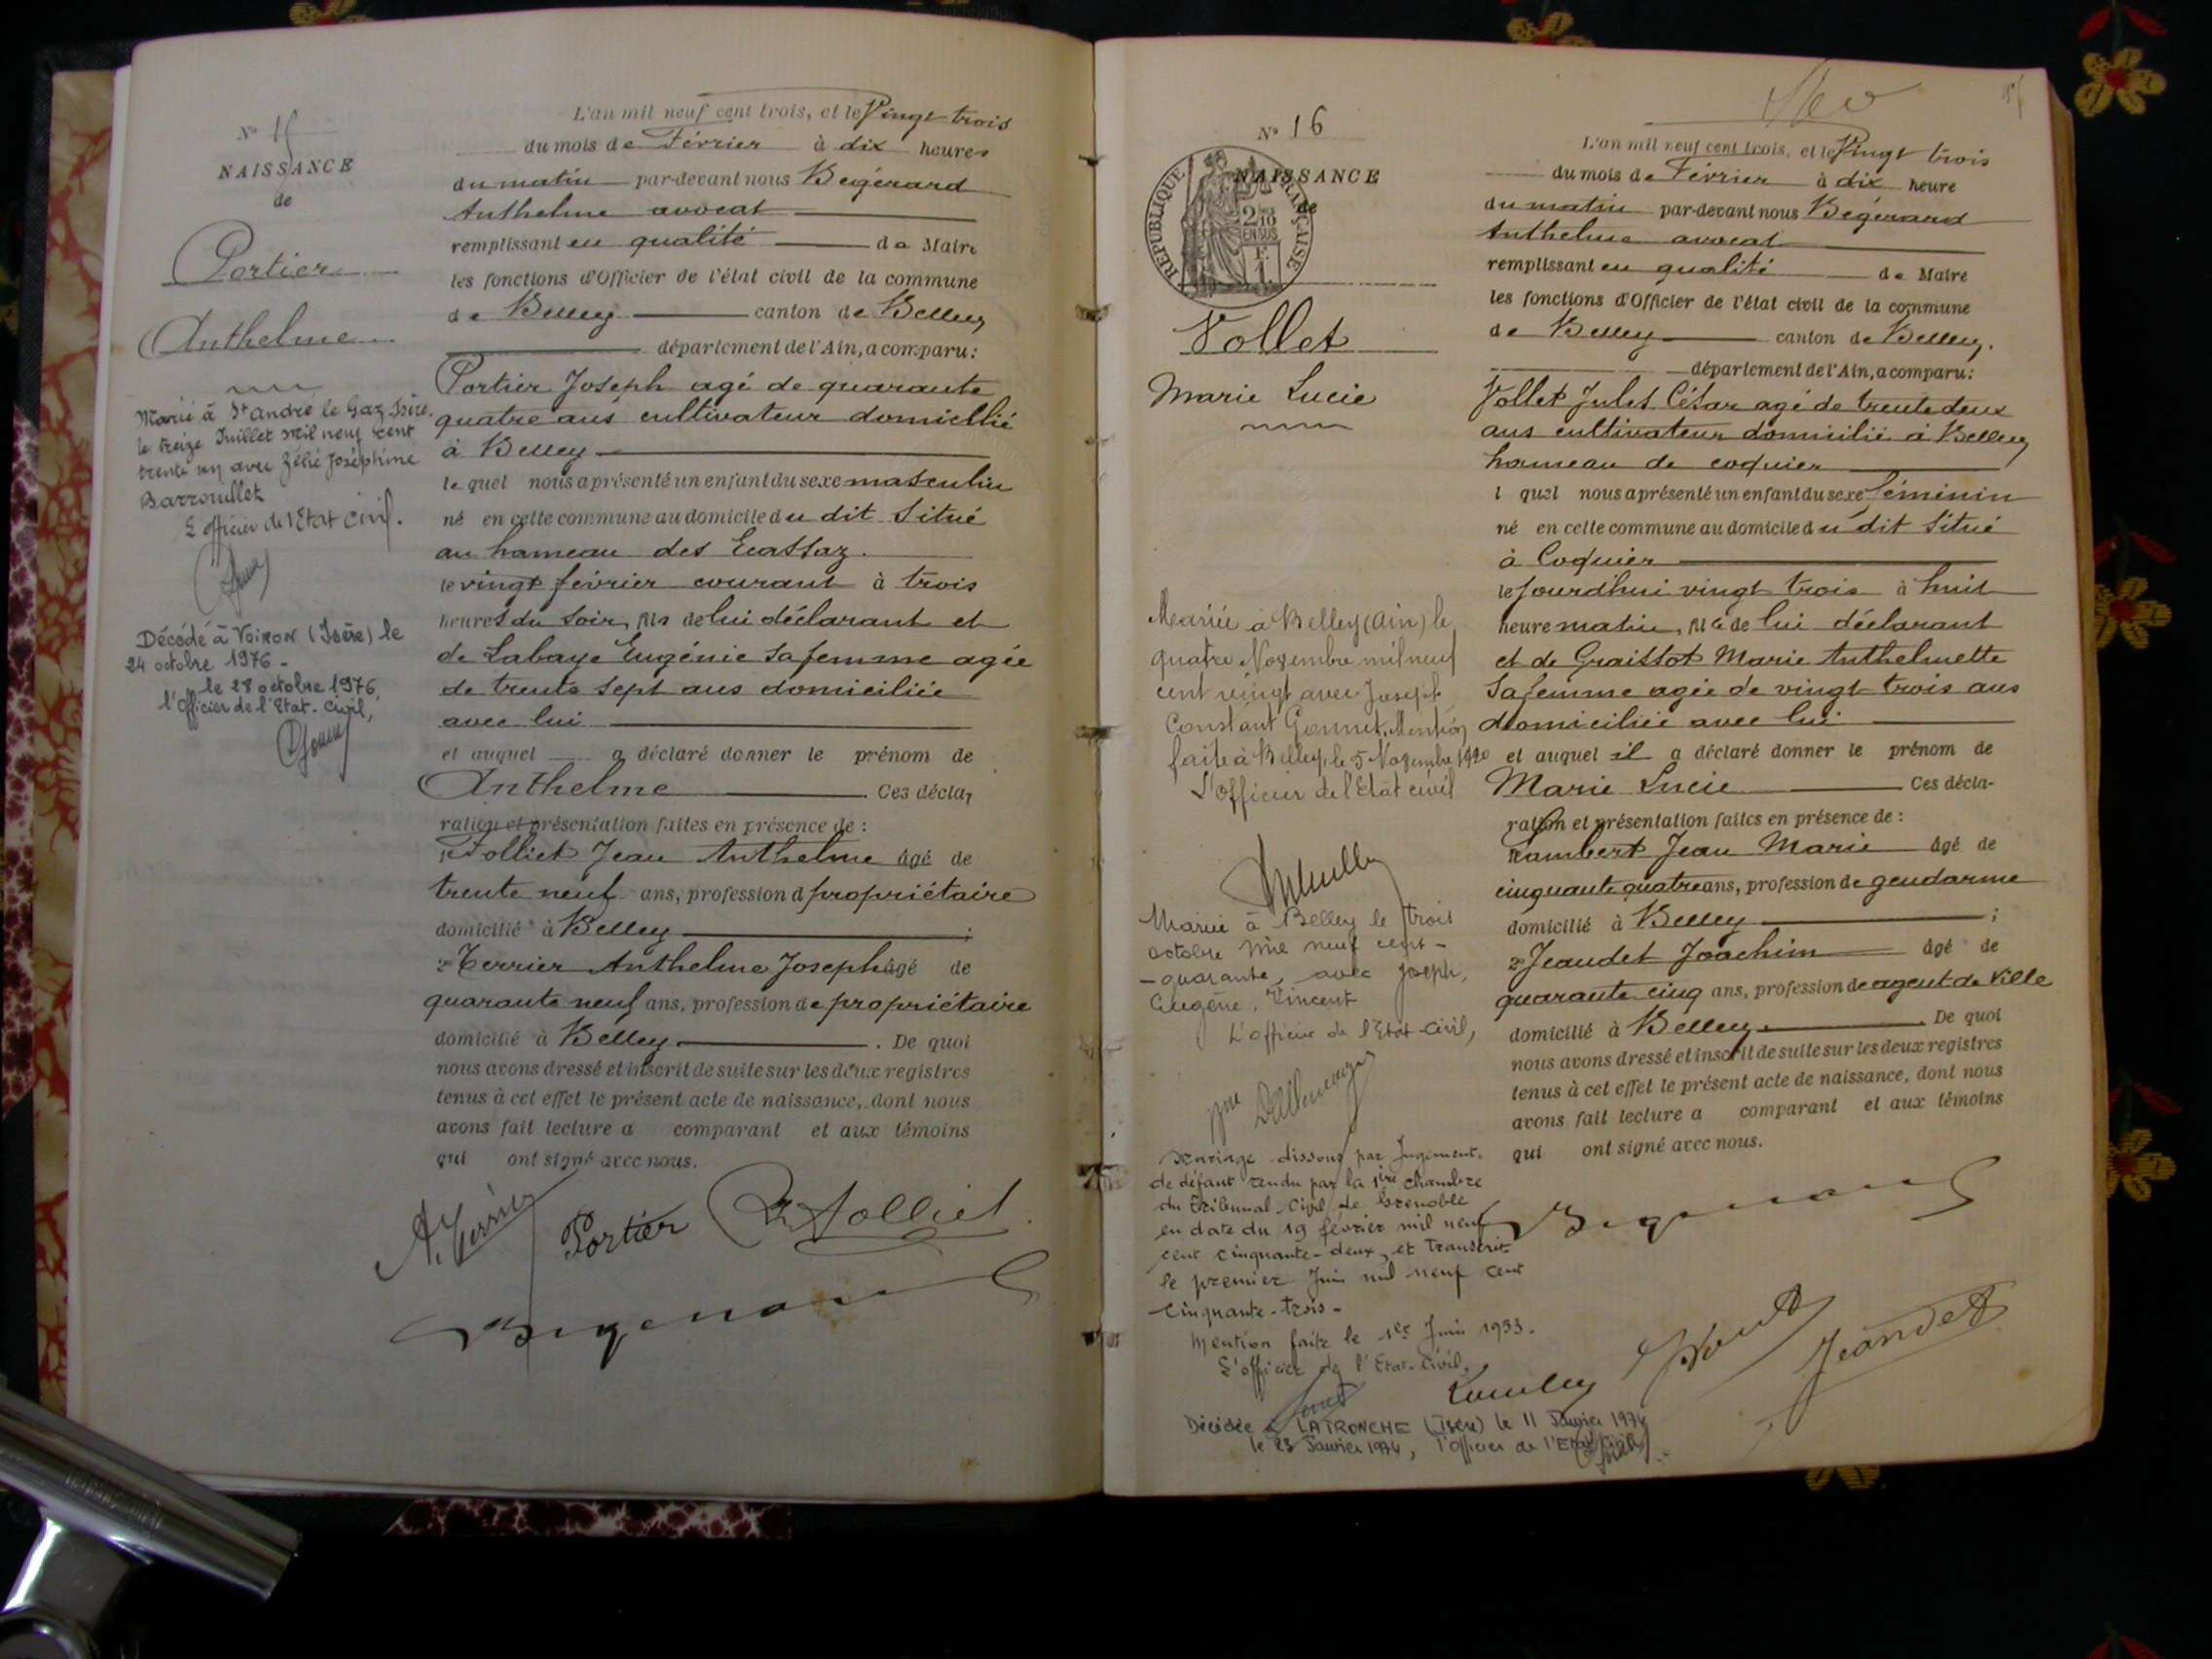 N° 15
NAISSANCE
de
Portier
Anthelme
Marié à St André le Gaz Isère
le treize Juillet mil neuf cent
trente un avec Zélie Joséphine
Barrouillet
L'officier de l'Etat civil.
Décédé à VOIRON (Isère) le
24 octobre 1976 -
le 28 octobre 1976,
l'Officier de l'Etat-civil,
L'an mil neuf cent trois, et le Vingt trois
du mois de Février à dix heures
du matin par-devant nous Bégérard
Anthelme avocat
remplissant en qualité de Maire
les fonctions d'Officier de l'état civil de la commune
de Belley canton de Belley
département de l'Ain, a comparu :
Portier Joseph agé de quarante
quatre ans cultivateur domicilié
à Belley
lequel nous a présenté un enfant du sexe masculin
né en cette commune au domicile du dit situé
au hameau des Ecassaz
le vingt février courant à trois
heures du soir, fils de lui déclarant et
de Labaye Eugénie sa femme agée
de trente sept ans domiciliée
avec lui
et auquel a déclaré donner le prénom de
Anthelme Ces décla-
ration et présentation faites en présence de :
1° Folliet Jean Anthelme âgé de
trente neuf ans, profession d propriétaire
domicilié à Belley ;
2° Terrier Anthelme Joseph âgé de
quarante neuf ans, profession de propriétaire
domicilié à Belley . De quoi
nous avons dressé et inscrit de suite sur les deux registres
tenus à cet effet le présent acte de naissance, dont nous
avons fait lecture a comparant et aux témoins
qui ont signé avec nous.
A. Terrier Portier Folliet
Begerard
N° 16
NAISSANCE
de
REPUBLIQUE FRANÇAISE
2/10
EN SUS
F.
1
Vollet
Marie Lucie
Mariée à Belley (Ain) le
quatre Novembre mil neuf
cent vingt avec Joseph
Constant Gonnet. Mention
faite à Belley, le 5 Novembre 1920
L'officier de l'Etat civil
Mariée à Belley le trois
octobre mil neuf cent-
- quarante, avec Joseph,
Eugène, Vincent
L'officier de l'Etat-civil,
Mariage dissous par Jugement
de défaut rendu par la 1ère chambre
du Tribunal Civil de Grenoble
en date du 19 février mil neuf
cent cinquante-deux, et transcrit
le premier Juin mil neuf cent
cinquante-trois -
Mention faite le 1er Juin 1953.
L'officier de l'Etat-Civil,
Décédée à LA TRONCHE (Isère) le 11 Janvier 1974
le 23 Janvier 1974, l'officier de l'Etat Civil
L'an mil neuf cent trois, et le Vingt trois
du mois de Février à dix heure
du matin par-devant nous Bégérard
Anthelme avocat
remplissant en qualité de Maire
les fonctions d'Officier de l'état civil de la commune
de Belley canton de Belley.
département de l'Ain, a comparu :
Vollet Jules César agé de trente deux
ans cultivateur domicilié à Belley
hameau de coquier
l quel nous a présenté un enfant du sexe féminin
né en cette commune au domicile du dit situé
à Coquier
le jourd'hui vingt trois à huit
heure matin, fille de lui déclarant
et de Graissot Marie Anthelmette
sa femme agée de vingt trois ans
domiciliée avec lui
et auquel il a déclaré donner le prénom de
Marie Lucie Ces décla-
ration et présentation faites en présence de :
Lambert Jean Marie âgé de
cinquante quatre ans, profession de gendarme
domicilié à Belley ;
2° Jeandet Joachim âgé de
quarante cinq ans, profession de agent de Ville
domicilié à Belley . De quoi
nous avons dressé et inscrit de suite sur les deux registres
tenus à cet effet le présent acte de naissance, dont nous
avons fait lecture a comparant et aux témoins
qui ont signé avec nous.
Begerard
Jeandet